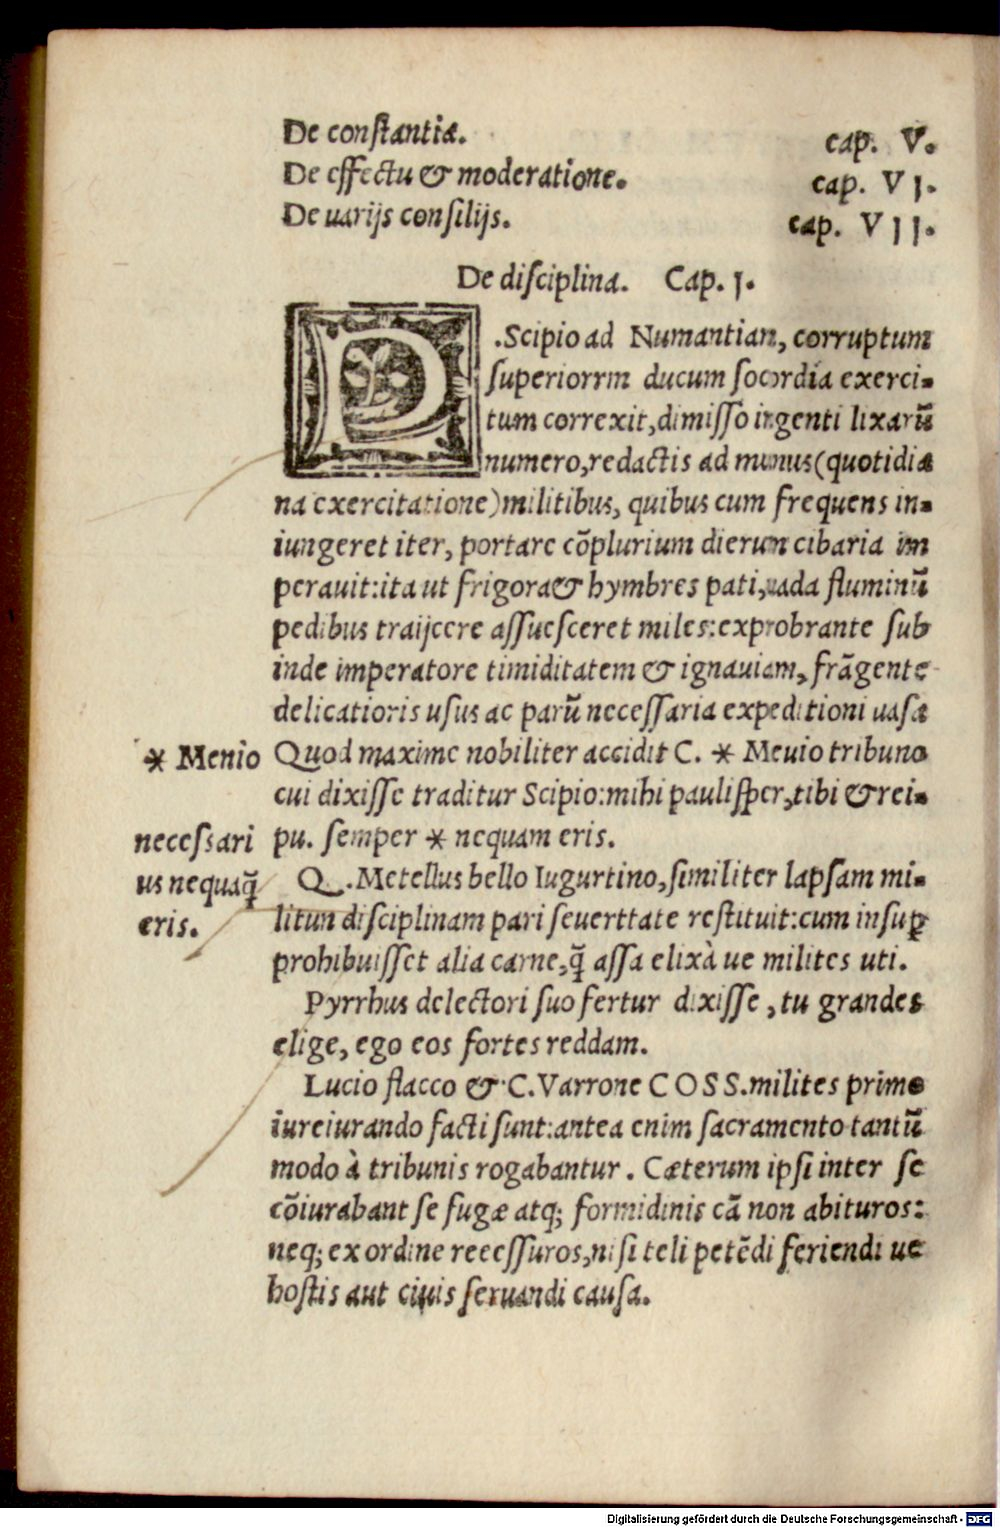 De constantia. cap. V.
De effectu & moderatione. cap. VI.
De uarijs consilijs. cap. VII.
De disciplina. Cap. I.
D .Scipio ad Numantian, corruptum
superiorrm ducum socordia exerci-
tum correxit, dimisso ingenti lixarū
numero, redactis ad munus (quotidia
na exercitatione) militibus, quibus cum frequens in-
iungeret iter, portare cōplurium dierum cibaria im
perauit: ita ut frigora & hymbres pati, uada fluminū
pedibus traijcere assuesceret miles: exprobrante sub
inde imperatore timiditatem & ignauiam, frāgente
delicatioris usus ac parū necessaria expeditioni uasa
* Menio
Quod maxime nobiliter accidit C. * Meuio tribuno
cui dixisse traditur Scipio: mihi paulisper, tibi & rei-
necessari
pu. semper * nequam eris.
us nequaq̄
Q. Metellus bello Iugurtino, similiter lapsam mi-
eris.
litun disciplinam pari seuerttate restituit: cum insuꝑ
prohibuisset alia carne, q̄ assa elixà ue milites uti.
Pyrrhus delectori suo fertur dixisse, tu grandes
elige, ego eos fortes reddam.
Lucio flacco & C. Varrone COSS. milites primo
iureiurando facti sunt: antea enim sacramento tantū
modo à tribunis rogabantur. Cæterum ipsi inter se
cōiurabant se fugæ atq; formidinis cā non abituros:
neq; ex ordine reeessuros, nisi teli petēdi feriendi ue
hostis aut ciuis seruandi causa.
Digitalisierung gefördert durch die Deutsche Forschungsgemeinschaft - DFG